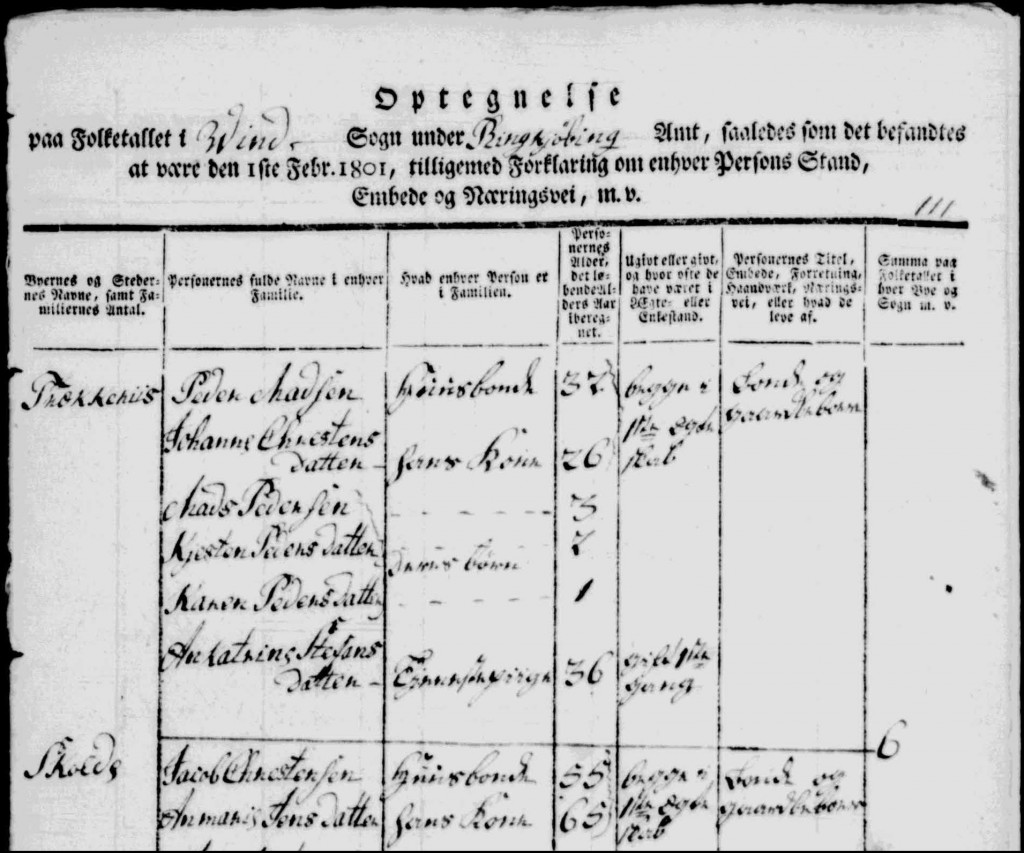 Optegnelse
paa Folketallet i Wind. Sogn under Ringkjöbing Amt, saaledes som det befandtes
at være den 1ste Febr. 1801, tilligemed Forklaring om enhver Persons Stand,
Embede og Næringsvei, m. v.
111
Byernes og Steder-
nes Navne, samt Fa-
miliernes Antal.
Personernes fulde Navne i enhver
Familie.
Hvad enhver Person er
i Familien.
Perso-
nernes
Alder,
det lø-
bende Al-
ders Aar
ibereg-
net.
Ugivt eller givt,
og hvor ofte de
have været i
Ægte- eller
Enkestand.
Personernes Titel,
Embede, Forretning,
Haandværk, Nærings-
vei, eller hvad de
leve af.
Summa paa
Folketallet i
hver Bye og
Sogn m. v.
Trækkeriis Peder Madsen Huusbonde 32 begge i Bonde og
1ste Egte gaardbeboer
Johanne Chrestens
datter - hans Kone 26 skab
Mads Pedersen - - - - - - 3
Kjesten Peders datter deres børn 2
Karen Peders datter - - - - - - 1
Ankatrine Stefans
datter - 36 gift 1ste
gang
6
Skolde Jacob Chrestensen Huusbonde 55 begge i Bonde og
Anmarie Jens datter hans Kone 65 1ste Egte gaardbeboer
skab